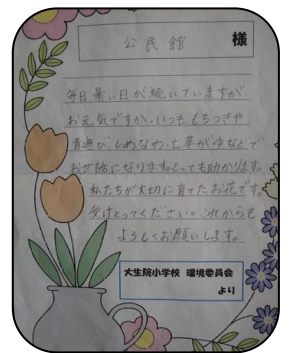 公民館 様
毎日暑い日が続いていますが
お元気ですか。いつももちつきや
昔遊び、しめなわ、七草がゆなどで
お世話になりまとても助かります。
私たちが大切に育てたお花です。
受けとってください。これからも
よろしくお願いします。
大生院小学校 環境委員会
より